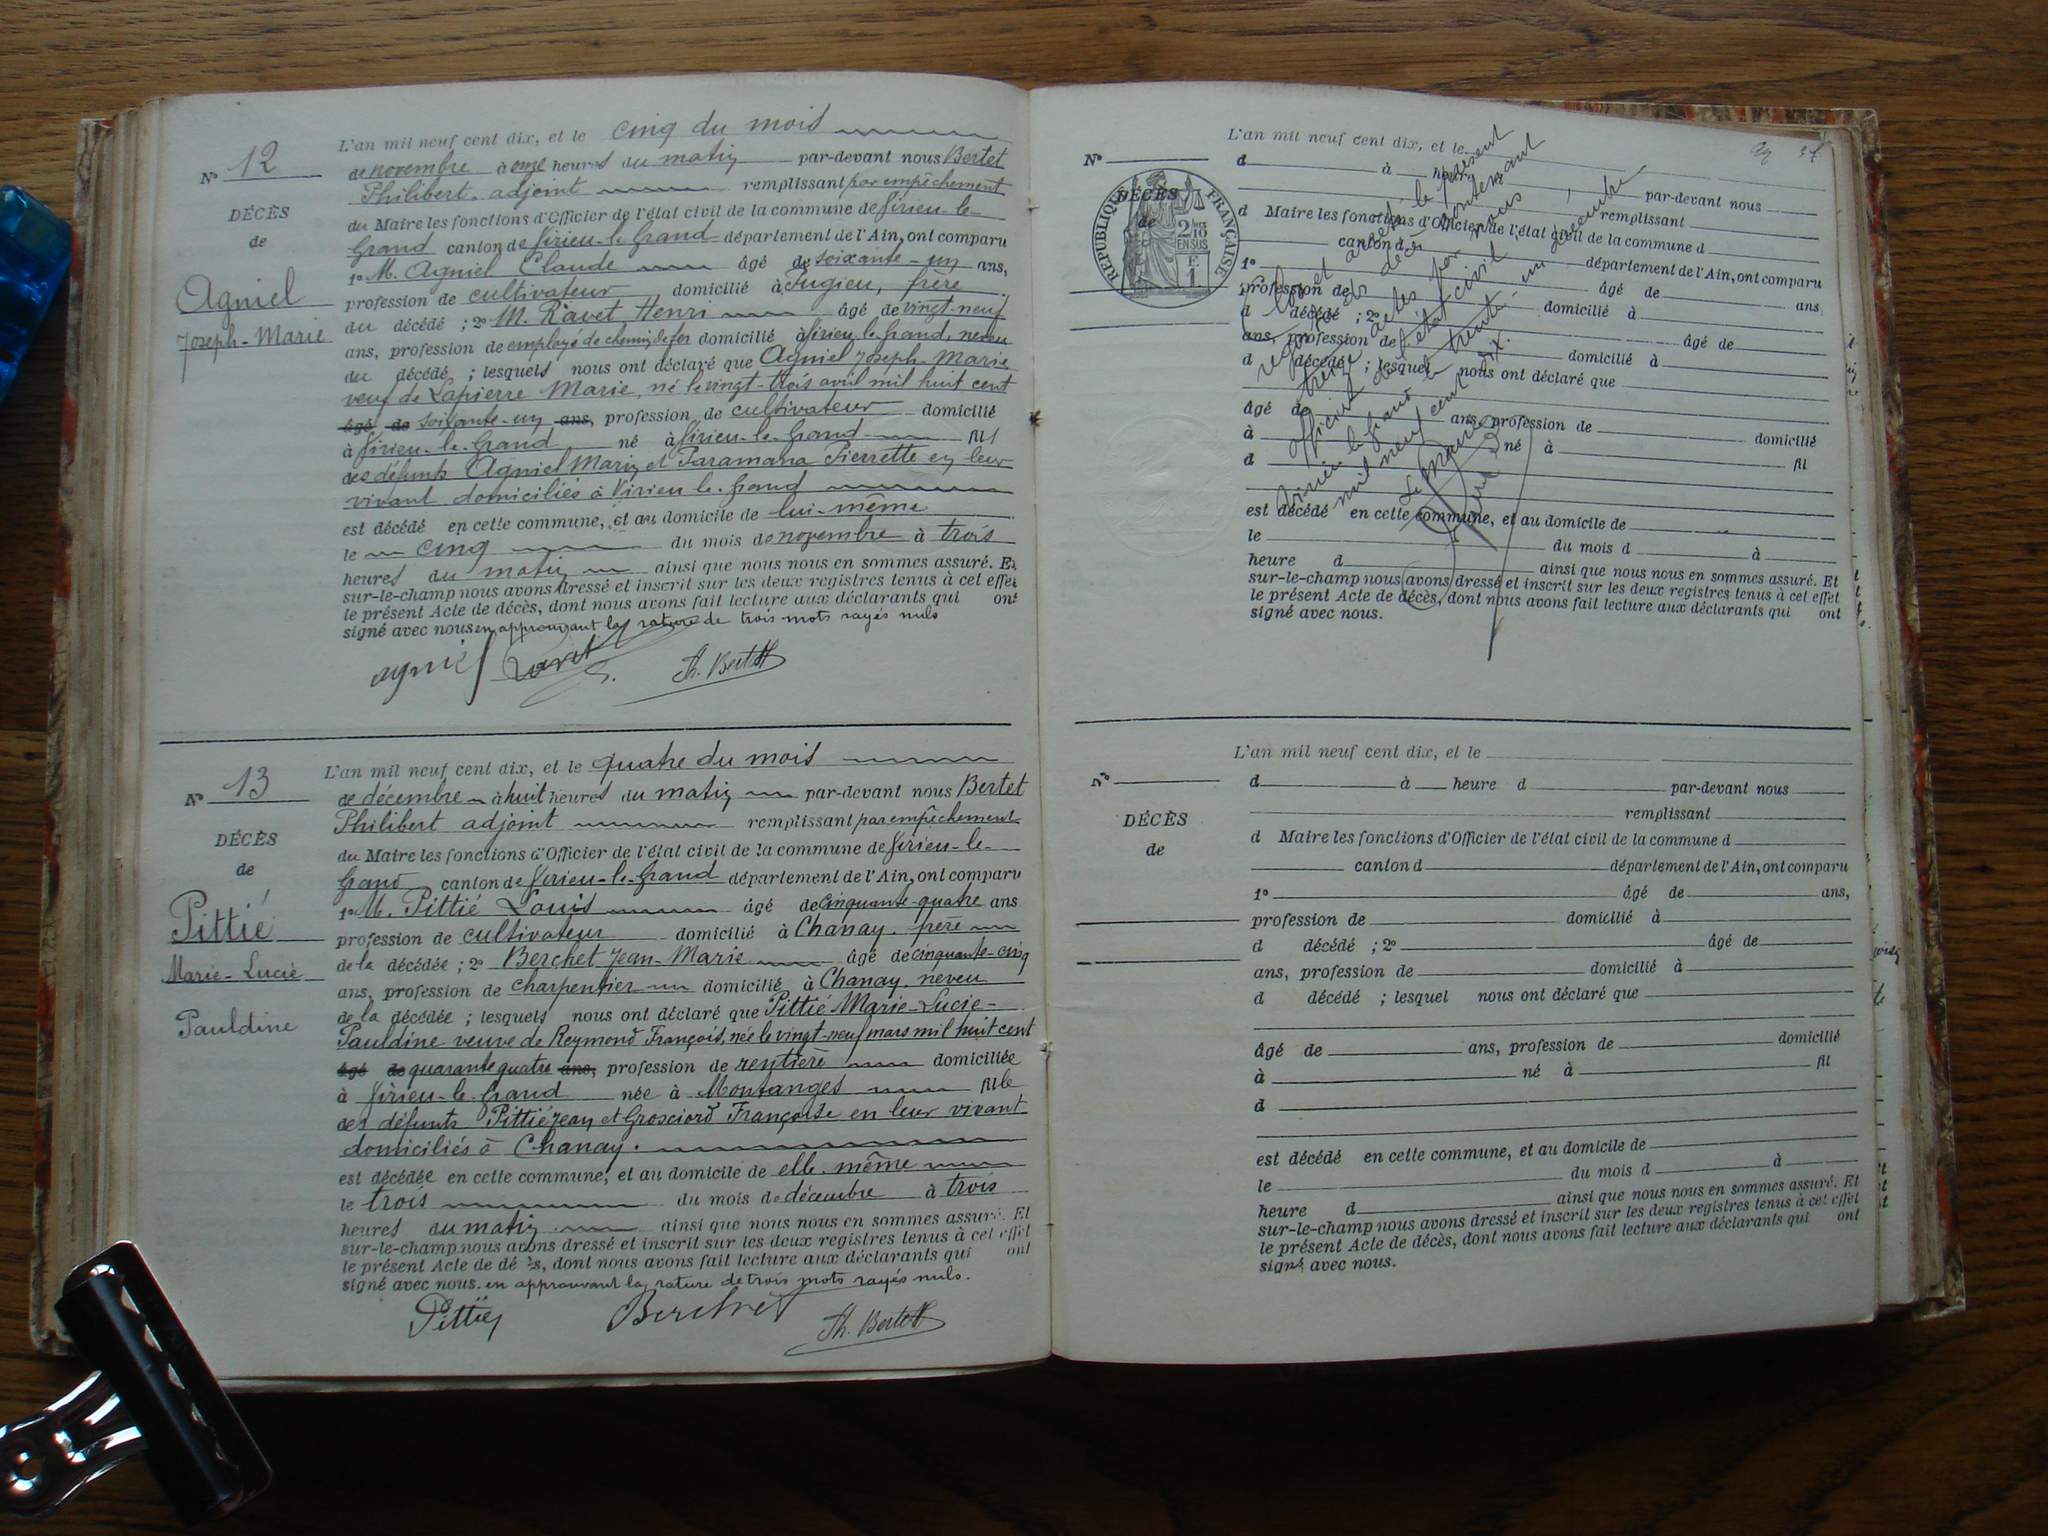 L'an mil neuf cent dix, et le cinq du mois
N° 12
de novembre à onze heures du matin par-devant nous Bertet
Philibert, adjoint remplissant par empêchement
DÉCÈS
du Maire les fonctions d'Officier de l'état civil de la commune de Virieu-le-
de
Grand canton de Virieu-le-Grand département de l'Ain, ont comparu
1° M. Agniel Claude âgé de soixante-un ans,
Agniel
profession de cultivateur domicilié à Pugieu, frère
Joseph-Marie
du décédé ; 2° M. Ravet Henri âgé de vingt-neuf
ans, profession de employé de chemin de fer domicilié à Virieu-le-Grand, neveu
du décédé ; lesquels nous ont déclaré que Agniel Joseph-Marie
veuf de Lapierre Marie, né le vingt-trois avril mil huit cent
âgé de soixante-un ans, profession de cultivateur domicilié
à Virieu-le-Grand né à Virieu-le-Grand fils
des défunts Agniel Marin et Pierrette en leur
vivant domiciliés à Virieu-le-Grand
est décédé en cette commune, et au domicile de lui-même
le cinq du mois de novembre à trois
heures du matin ainsi que nous nous en sommes assuré. Et
sur-le-champ nous avons dressé et inscrit sur les deux registres tenus à cet effet
le présent Acte de décès, dont nous avons fait lecture aux déclarants qui ont
signé avec nous en approuvant la rature de trois mots rayés nuls
agniel Ravet Ph. Bertet
L'an mil neuf cent dix, et le quatre du mois
N° 13
de décembre à huit heures du matin par-devant nous Bertet
Philibert adjoint remplissant par empêchement
DÉCÈS
du Maire les fonctions d'Officier de l'état civil de la commune de Virieu-le-
de
Grand canton de Virieu-le-Grand département de l'Ain, ont comparu
1° M. Pittié Louis âgé de cinquante-quatre ans
Pittié
profession de cultivateur domicilié à Chanay. frère
Marie-Lucie
de la décédée ; 2° Berchet Jean-Marie âgé de cinquante-cinq
ans, profession de charpentier domicilié à Chanay. neveu
Pauldine
de la décédée ; lesquels nous ont déclaré que Pittié Marie-Lucie-
Pauldine veuve de Reymond François, née le vingt-neuf mars mil huit cent
âgé de quarante quatre ans, profession de rentière domiciliée
à Virieu-le-Grand née à Montanges fille
des défunts Pittié Jean et Grosciord Françoise en leur vivant
domiciliés à Chanay.
est décédée en cette commune, et au domicile de elle-même
le trois du mois de décembre à trois
heures du matin ainsi que nous nous en sommes assuré. Et
sur-le-champ nous avons dressé et inscrit sur les deux registres tenus à cet effet
le présent Acte de décès, dont nous avons fait lecture aux déclarants qui ont
signé avec nous. en approuvant la rature de trois mots rayés nuls.
Pittié Berchet Ph. Bertet
L'an mil neuf cent dix, et le
N°
d à heure d par-devant nous
remplissant
DÉCÈS
de
RÉPUBLIQUE FRANÇAISE
2/10 EN SUS
F. 1
d Maire les fonctions d'Officier de l'état civil de la commune d
canton d département de l'Ain, ont comparu
1° âgé de ans,
profession de domicilié à
d décédé ; 2° âgé de
ans, profession de domicilié à
d décédé ; lesquel nous ont déclaré que
âgé de ans, profession de domicilié
à né à
d fil
est décédé en cette commune, et au domicile de
le du mois d à
heure d ainsi que nous nous en sommes assuré. Et
sur-le-champ nous avons dressé et inscrit sur les deux registres tenus à cet effet
le présent Acte de décès, dont nous avons fait lecture aux déclarants qui ont
signé avec nous.
Clos et arrêté le présent
registre de décès contenant
treize actes par nous
officier de l'état civil
Virieu-le-Grand le trente-un décembre
mil neuf cent dix.
Le Maire
L'an mil neuf cent dix, et le
N°
d à heure d par-devant nous
remplissant
DÉCÈS
d Maire les fonctions d'Officier de l'état civil de la commune d
de
canton d département de l'Ain, ont comparu
1° âgé de ans,
profession de domicilié à
d décédé ; 2° âgé de
ans, profession de domicilié à
d décédé ; lesquel nous ont déclaré que
âgé de ans, profession de domicilié
à né à fil
d
est décédé en cette commune, et au domicile de
le du mois d à
heure d ainsi que nous nous en sommes assuré. Et
sur-le-champ nous avons dressé et inscrit sur les deux registres tenus à cet effet
le présent Acte de décès, dont nous avons fait lecture aux déclarants qui ont
signé avec nous.